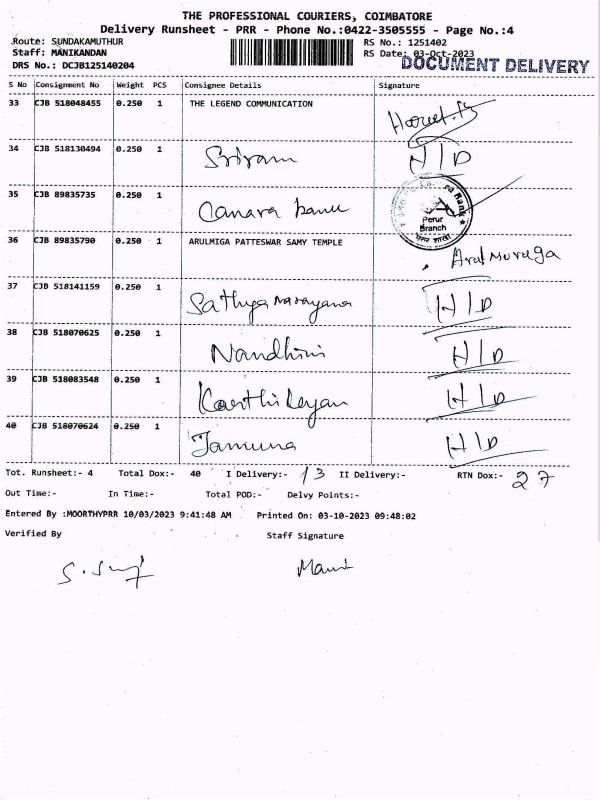 THE PROFESSIONAL COURIERS, COIMBATORE
Delivery Runsheet - PRR - Phone No.:0422-3505555 - Page No.:4
Route: SUNDAKAMUTHUR RS No.: 1251402
Staff: MANIKANDAN RS Date: 03-Oct-2023
DRS No.: DCJB125140204 DOCUMENT DELIVERY
S No Consignment No Weight PCS Consignee Details Signature
33 CJB 518048455 0.250 1 THE LEGEND COMMUNICATION
34 CJB 518130494 0.250 1 Sriram H/D
35 CJB 89835735 0.250 1 Canara bank
Perur
Branch
36 CJB 89835790 0.250 1 ARULMIGA PATTESWAR SAMY TEMPLE Arulmuruga
37 CJB 518141159 0.250 1 Sathya Narayana H/D
38 CJB 518070625 0.250 1 Nandhini H/D
39 CJB 518083548 0.250 1 Karthikeyan H/D
40 CJB 518070624 0.250 1 Jamuna H/D
Tot. Runsheet:- 4 Total Dox:- 40 I Delivery:- 13 II Delivery:- RTN Dox:- 27
Out Time:- In Time:- Total POD:- Delvy Points:-
Entered By :MOORTHYPRR 10/03/2023 9:41:48 AM Printed On: 03-10-2023 09:48:02
Verified By Staff Signature
Mani